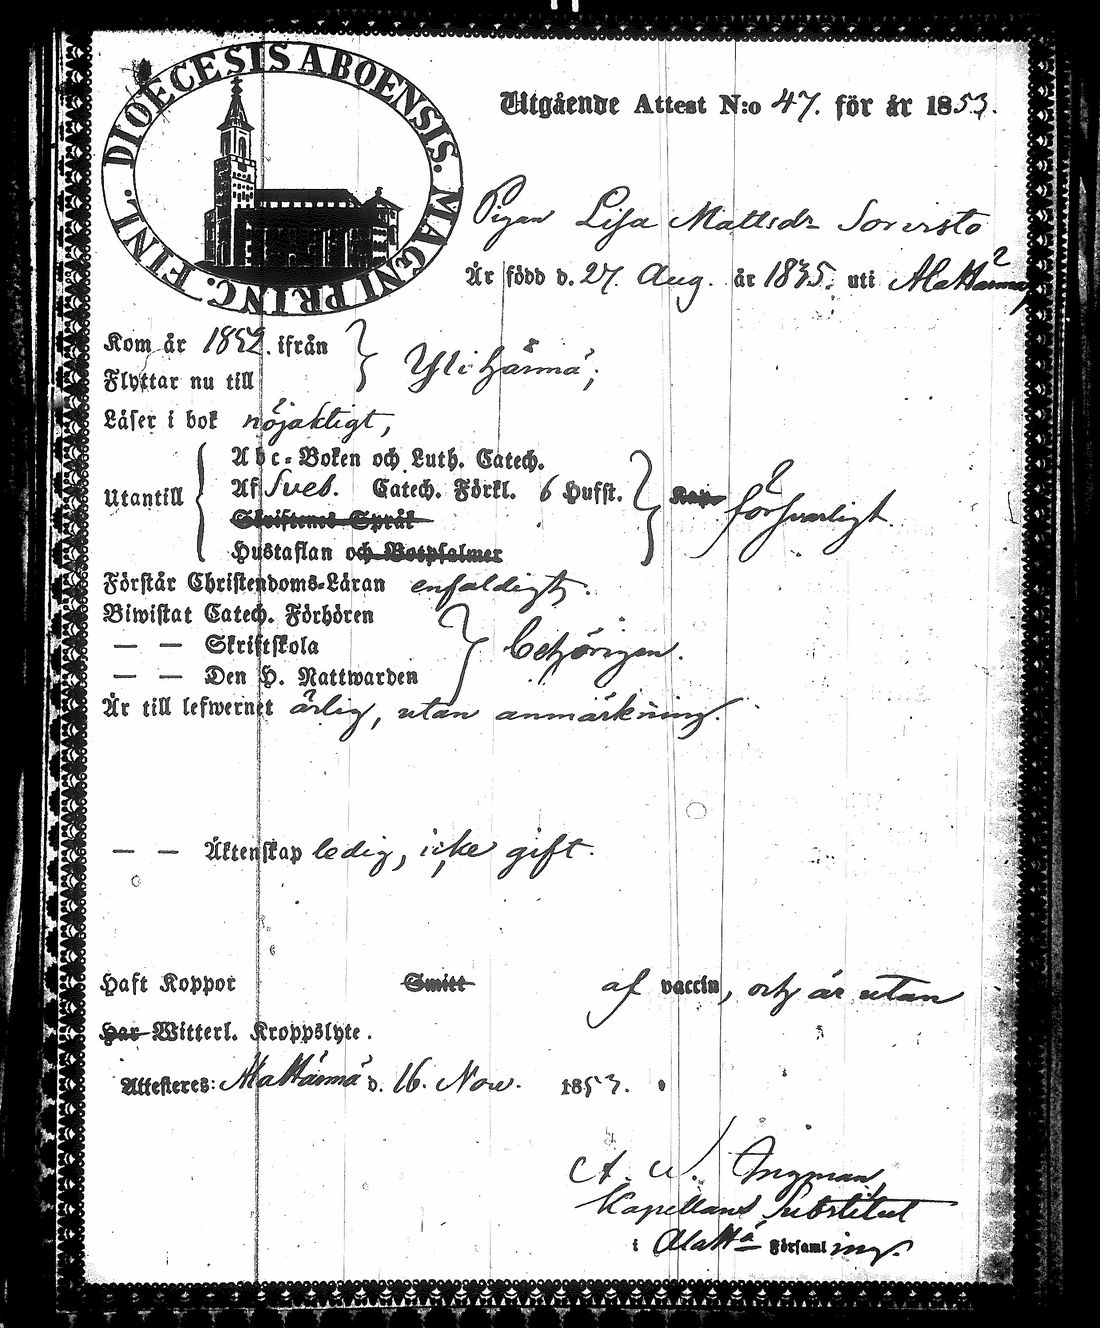 DIOECESIS ABOENSIS. MAGNI PRINC. FINL.
Utgående Attest N:o 47. för år 1853.
Pigan Lisa Mattsdr Sorvisto
Är född d. 27. Aug. år 1835. uti Alahärmä
Kom år 1852. ifrån
Flyttar nu till
Yli härmä;
Läser i bok nöjaktigt,
Utantill
Abc-Boken och Luth. Catech.
Af Sveb. Catech. Förkl. 6 Hufst.
Skriftenes Språk
Hustaflan och Botpsalmer
försvarligt
Förstår Christendoms-Läran enfaldigt.
Biwistat Catech. Förhören
— — Skriftskola
— — Den H. Nattwarden
behörigen.
Är till lefwernet ärlig, utan anmärkning.
— — Äktenskap ledig, icke gift.
Haft Koppor Smitt af vaccin, och är utan
Har Witterl. Kroppslyte.
Attesteres: Alahärmä d. 16. Nov. 1853.
A. W. Ingman,
Kapellans Substitut
i Alahä Församling.